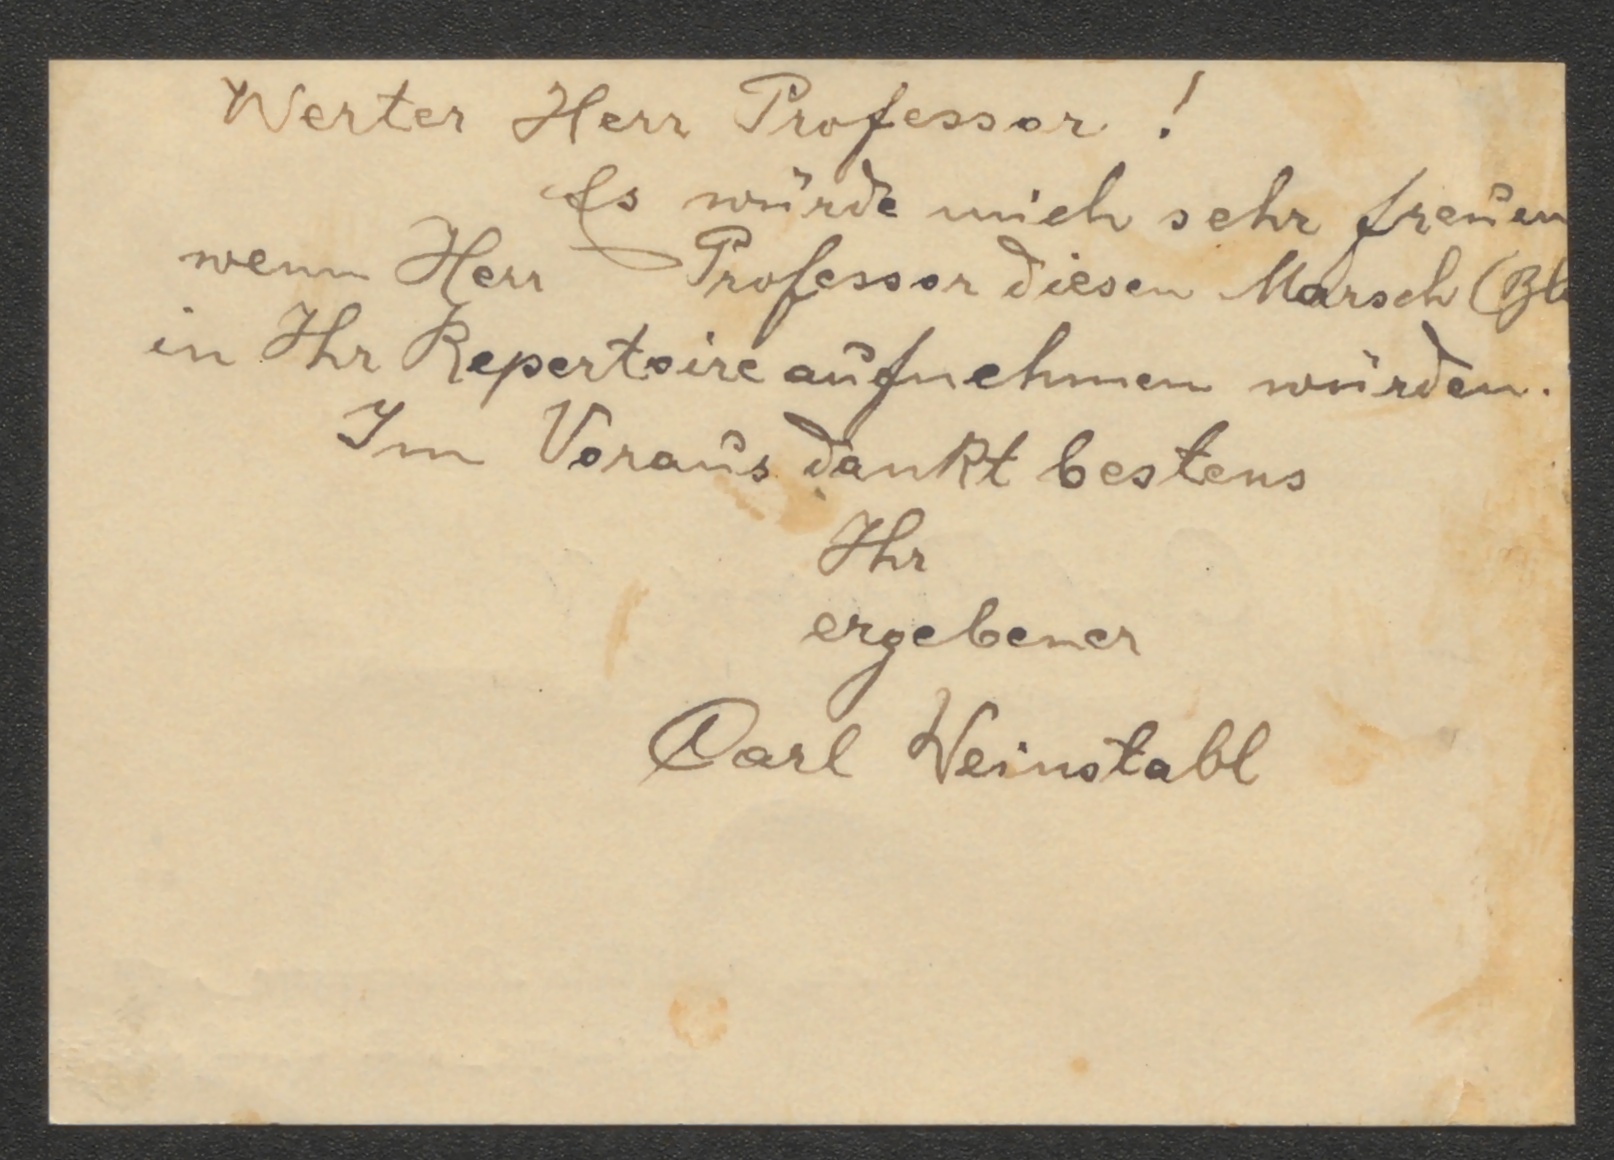 Werter Herr Professor !
Es würde mich sehr freuen
wenn Herr Professor diesen Marsch
in Ihr Repertoire aufnehmen würden.
Im Voraus dankt bestens
Ihr
ergebener
Carl Weinstabl